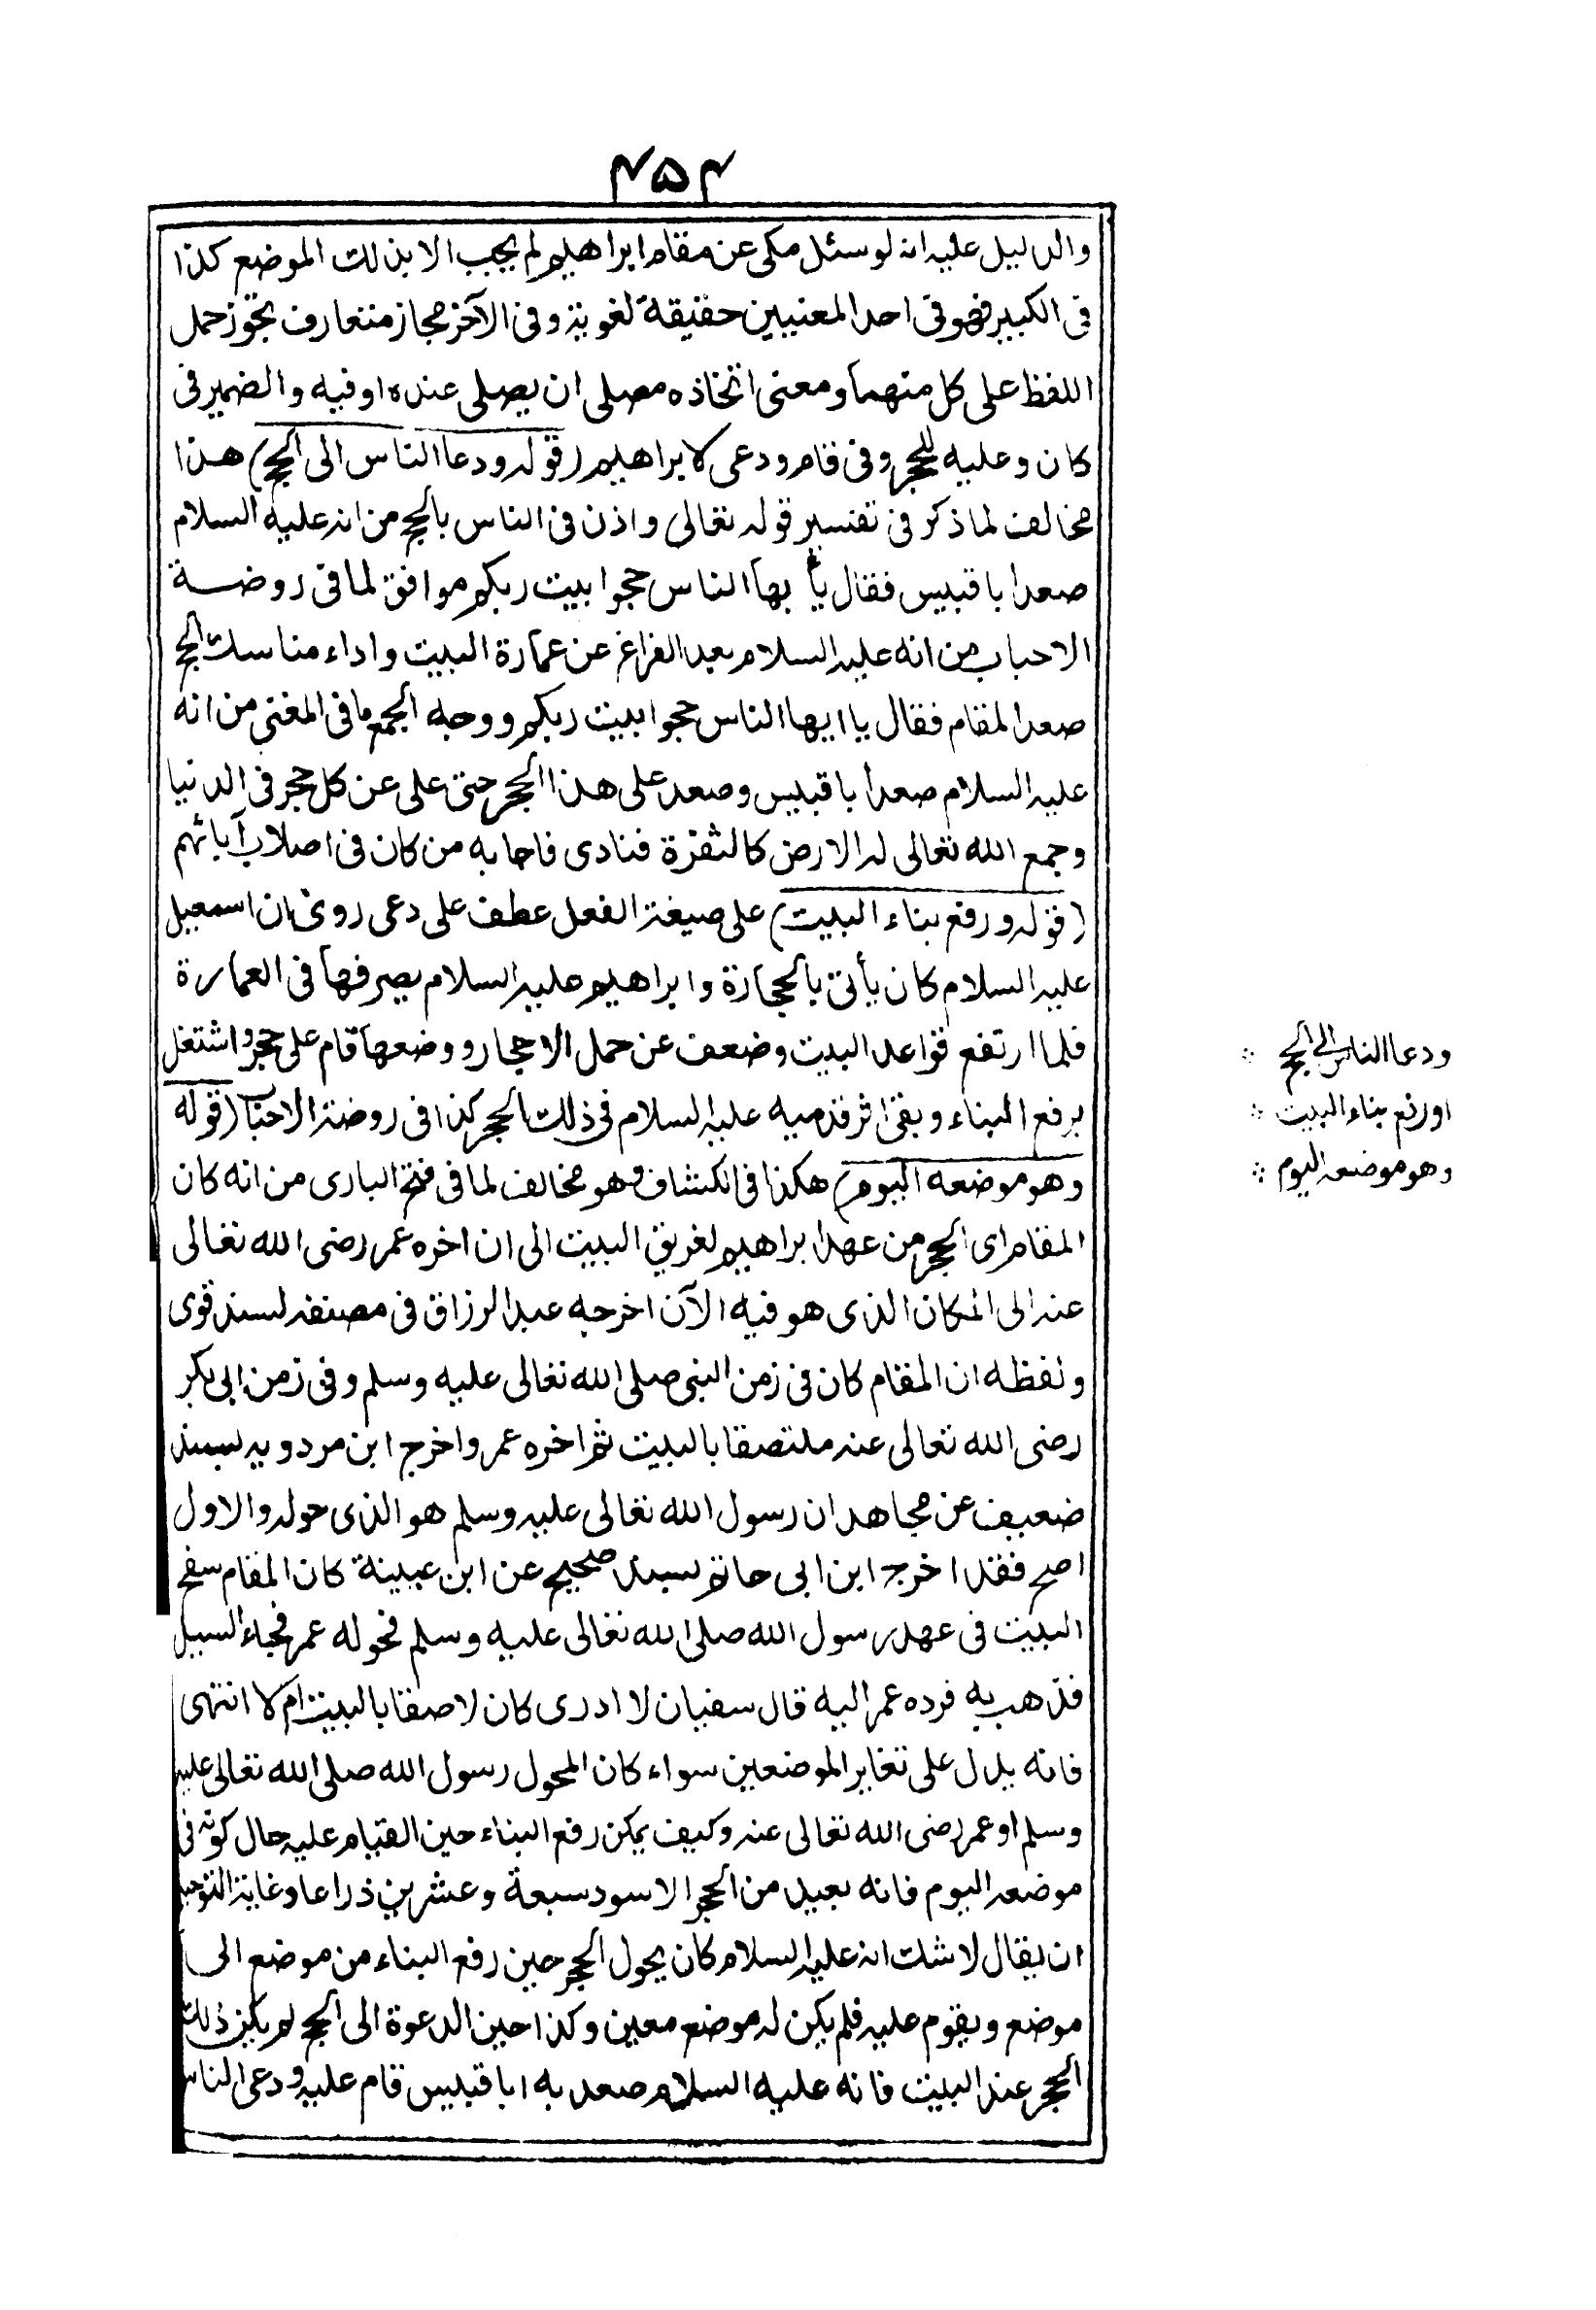 ۴۵۴
والدليل عليه انه لو سئل مكى عن مقام ابراهيم لم يجب الا بذلك الموضع كذا
فى الكبير فهو فى احد المعنيين حقيقة لغوية وفى الآخر مجاز متعارف يجوز حمل
اللفظ على كل منهما ومعنى اتخاذه مصلى ان يصلى عنده او فيه والضمير فى
كان وعليه للحجر وفى قام ودعى لابراهيم (قوله ودعا الناس الى الحج) هذا
مخالف لما ذكر فى تفسير قوله تعالى واذن فى الناس بالحج من انه عليه السلام
صعد ابا قبيس فقال يا ايها الناس حجوا بيت ربكم موافق لما فى روضة
الاحباب من انه عليه السلام بعد الفراغ عن عمارة البيت واداء مناسك الحج
صعد المقام فقال يا ايها الناس حجوا بيت ربكم ووجه الجمع ما فى المغنى من انه
عليه السلام صعد ابا قبيس وصعد على هذا الحجر حتى على عن كل حجر فى الدنيا
وجمع الله تعالى له الارض كالثفرة فنادى فاجابه من كان فى اصلاب آبائهم
(قوله ورفع بناء البيت) على صيغة الفعل عطف على دعى روى ان اسمعيل
عليه السلام كان يأتى بالحجارة وابراهيم عليه السلام يصرفها فى العمارة
فلما ارتفع قواعد البيت وضعف عن حمل الاحجار ووضعها قام على حجر واشتغل
برفع البناء وبقى اثر قدميه عليه السلام فى ذلك الحجر كذا فى روضة الاحباب (قوله
وهو موضعه اليوم) هكذا فى الكشاف وهو مخالف لما فى فتح البارى من انه كان
المقام اى الحجر من عهد ابراهيم لغريق البيت الى ان اخره عمر رضى الله تعالى
عنه الى المكان الذى هو فيه الآن اخرجه عبد الرزاق فى مصنفه لسند قوى
ولفظه ان المقام كان فى زمن النبى صلى الله تعالى عليه وسلم وفى زمن ابى بكر
رضى الله تعالى عنه ملتصقا بالبيت ثم اخره عمر واخرج ابن مردويه بسند
ضعيف عن مجاهد ان رسول الله تعالى عليه وسلم هو الذى حوله والاول
اصح فقد اخرج ابن ابى حاتم بسند صحيح عن ابن عيينة كان المقام سفح
البيت فى عهد رسول الله صلى الله تعالى عليه وسلم فحوله عمر فجاء السيل
فذهب به فرده عمر اليه قال سفيان لا ادرى كان لاصقا بالبيت ام لا انتهى
فانه يدل على تغاير الموضعين سواء كان المحول رسول الله صلى الله تعالى عليه
وسلم او عمر رضى الله تعالى عنه وكيف يمكن رفع البناء حين القيام عليه حال كونه فى
موضعه اليوم فانه بعيد من الحجر الاسود سبعة وعشرين ذراعا وغاية التوجيه
ان يقال لا شك انه عليه السلام كان يحول الحجر حين رفع البناء من موضع الى
موضع ويقوم عليه فلم يكن له موضع معين وكذا حين الدعوة الى الحج لم يكن ذلك
الحجر عند البيت فانه عليه السلام صعد به ابا قبيس قام عليه ودعى الناس
ودعا الناس الى الحج
او رفع بناء البيت
وهو موضعه اليوم